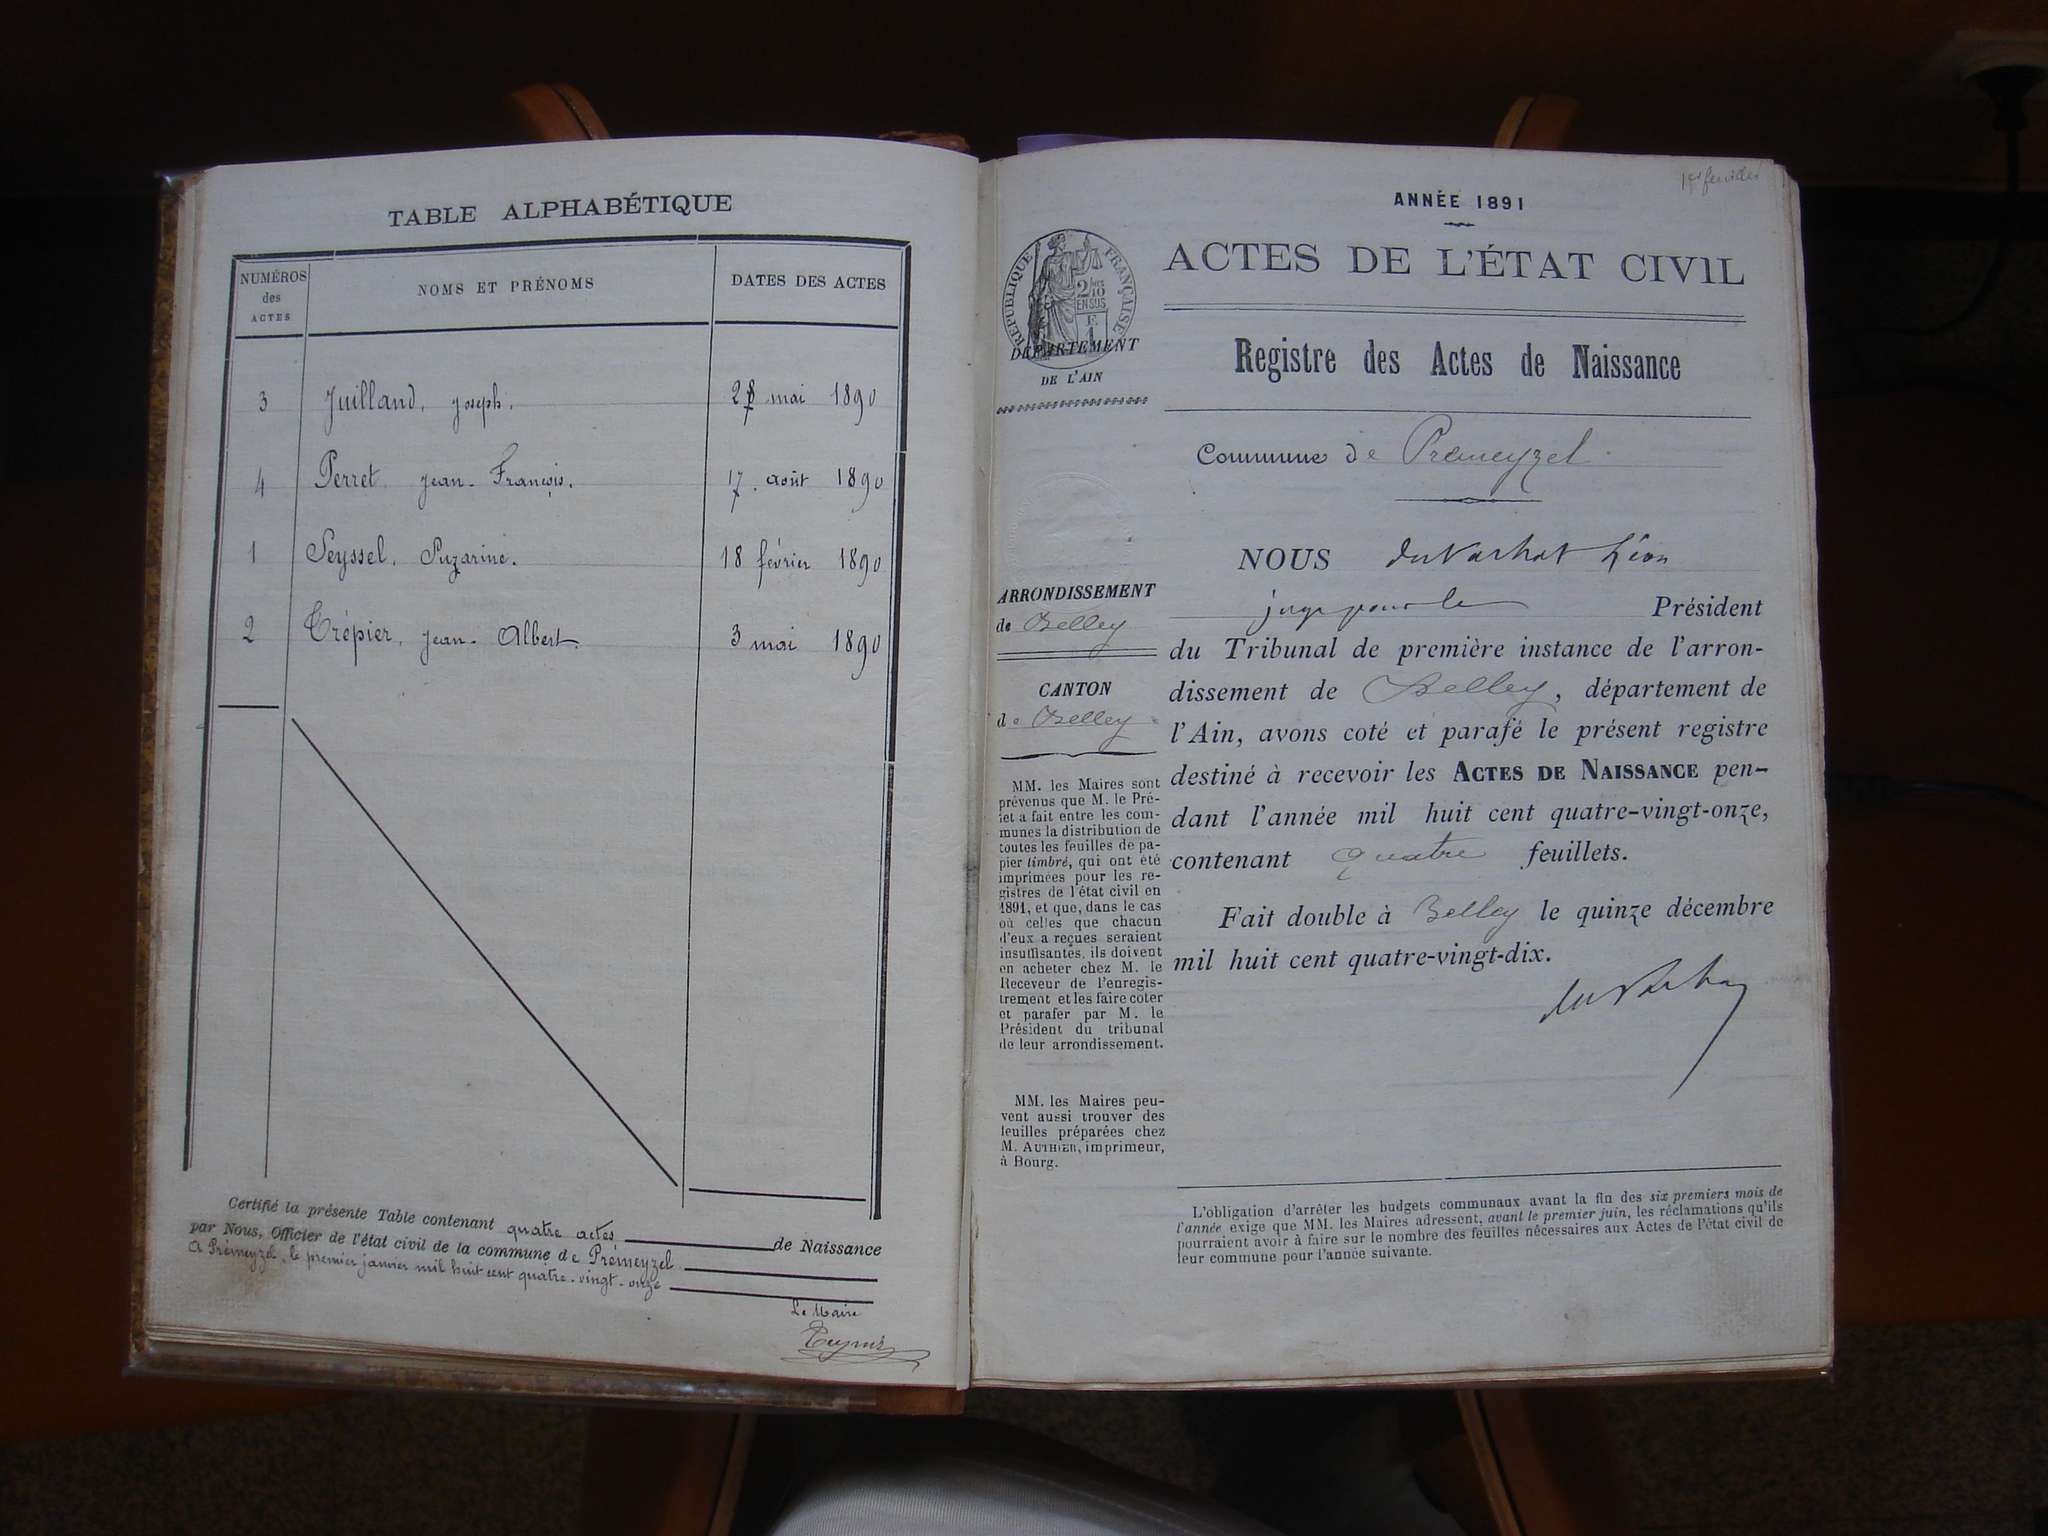 TABLE ALPHABÉTIQUE
NUMÉROS des ACTES
NOMS ET PRÉNOMS
DATES DES ACTES
3 Juilland, Joseph. mai 1890
4 Perret Jean-François. 17 août 1890
1 Seyssel, Suzarine. 18 février 1890
2 Trépier, Jean-Albert. 3 mai 1890
Certifié la présente Table contenant quatre actes de Naissance
par Nous, Officier de l'état civil de la commune de Prémeyzel
A Prémeyzel, le premier janvier mil huit cent quatre-vingt-onze
Le Maire
1er feuillet
ANNÉE 1891
ACTES DE L'ÉTAT CIVIL
RÉPUBLIQUE FRANÇAISE
2 10
EN SUS
F.
1
DÉPARTEMENT
DE L'AIN
Registre des Actes de Naissance
Commune de Premeyzel
ARRONDISSEMENT
de Belley
CANTON
de Belley
MM. les Maires sont
prévenus que M. le Pré-
fet a fait entre les com-
munes la distribution de
toutes les feuilles de pa-
pier timbré, qui ont été
imprimées pour les re-
gistres de l'état civil en
1891, et que, dans le cas
où celles que chacun
d'eux a reçues seraient
insuffisantes, ils doivent
en acheter chez M. le
Receveur de l'enregis-
trement et les faire coter
et parafer par M. le
Président du tribunal
de leur arrondissement.
MM. les Maires peu-
vent aussi trouver des
feuilles préparées chez
M. AUTHIER, imprimeur,
à Bourg.
NOUS Léon
juge pour le Président
du Tribunal de première instance de l'arron-
dissement de Belley, département de
l'Ain, avons coté et parafé le présent registre
destiné à recevoir les ACTES DE NAISSANCE pen-
dant l'année mil huit cent quatre-vingt-onze,
contenant quatre feuillets.
Fait double à Belley le quinze décembre
mil huit cent quatre-vingt-dix.
L'obligation d'arrêter les budgets communaux avant la fin des six premiers mois de
l'année exige que MM. les Maires adressent, avant le premier juin, les réclamations qu'ils
pourraient avoir à faire sur le nombre des feuilles nécessaires aux Actes de l'état civil de
leur commune pour l'année suivante.